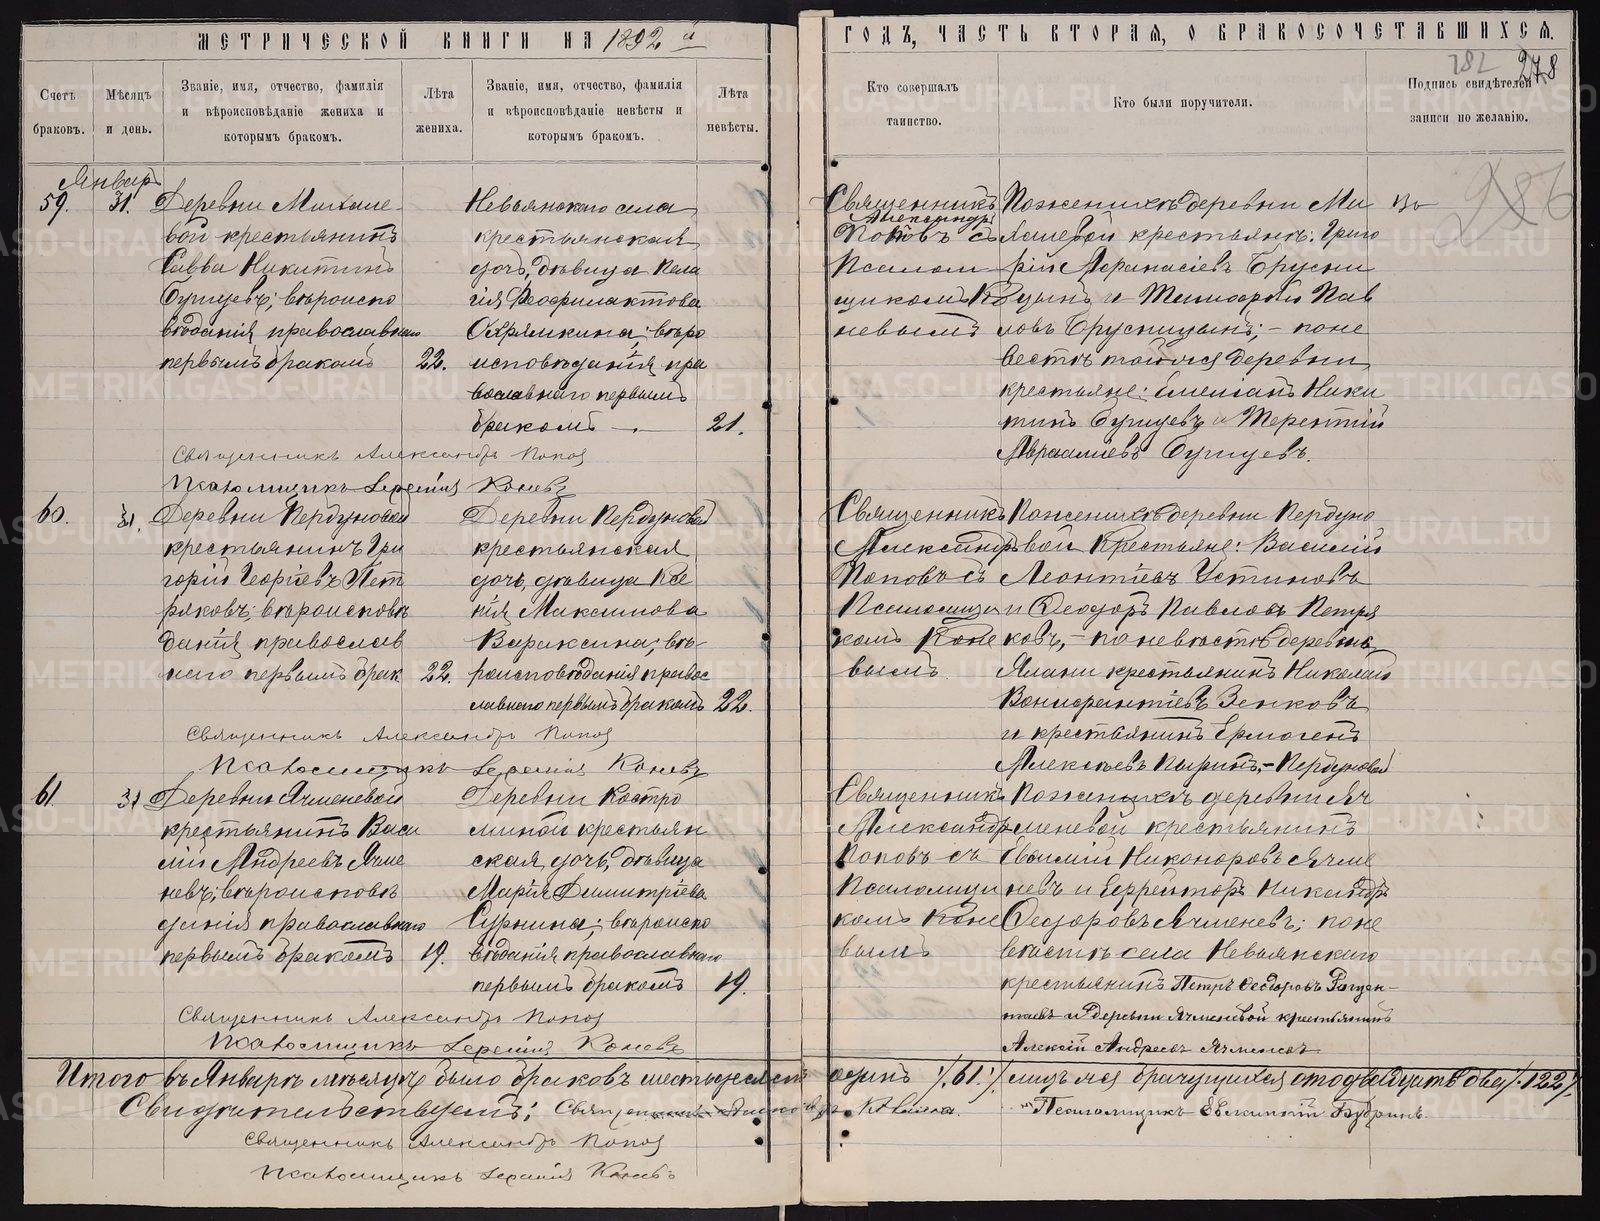 МЕТРИЧЕСКОЙ КНИГИ НА 1892 й
ГОДЪ, ЧАСТЬ ВТОРАЯ, О БРАКОСОЧЕТАВШИХСЯ.
182 278
Счетъ браковъ.
Мѣсяцъ и день.
Званіе, имя, отчество, фамилія
и вѣроисповѣданіе жениха и
которымъ бракомъ.
Лѣта
жениха.
Званіе, имя, отчество, фамилія
и вѣроисповѣданіе невѣсты и
которымъ бракомъ.
Лѣта
невѣсты.
Кто совершалъ
таинство.
Кто были поручители.
Подпись свидѣтелей
записи по желанію.
286
Январь
59. 31.
Деревни Михале-
вой крестьянинъ
Савва Никитинъ
вѣроиспо
вѣданія православнаго
первымъ бракомъ 22.
Невьянскаго села
крестьянская
дочь, дѣвица Пела
гія Феофилактова
Охрямкина; вѣро
исповѣданія пра
вославнаго первымъ
бракомъ 21.
Священникъ
Александръ
Поповъ съ
Псалом
щикомъ Ко
невымъ
По женихѣ деревни Ми
халевой крестьяне: Григо
рій Афанасіевъ Брусни
цынъ и Тимофей Пав
ловъ Брусницынъ; – по не
вестѣ тойже деревни
крестьяне: Емеліанъ Ники
тинъ и Терентій
Священникъ Александръ Попов
Псаломщикъ Іеремія Коневъ
60. 31.
Деревни Пердуновой
крестьянинъ Гри
горій Георгіевъ Пет
ряковъ; вѣроисповѣ
данія православ
наго первымъ брак 22.
Деревни Пердуновой
крестьянская
дочь, дѣвица Ксе
нія Максимова
Вараксина; вѣ-
роисповѣданія правос
лавнаго первымъ бракомъ 22.
Священникъ
Александръ
Поповъ съ
Псаломщи
комъ Коне
вымъ
По женихѣ деревни Пердуно
вой крестьяне: Василій
Леонтіевъ Устиновъ
и Ѳеодоръ Павловъ Петря
ковъ, – по невѣстѣ деревни
Ялани крестьянинъ Николай
Вонифантіевъ Зенковъ
и крестьянинъ Ермогенъ
Алексѣевъ Пыринъ, – Пердуновой
Священникъ Александръ Попов
Псаломщикъ Іеремія Коневъ
61. 31
Деревни Ячменевой
крестьянинъ Васи
лій Андреевъ Ячме
невъ; вѣроисповѣ
данія православнаго
первымъ бракомъ 19.
Деревни Костро
миной крестьян
ская дочь, дѣвица
Марія Димитріева
Сурнина; вѣроиспо
вѣданія православнаго
первымъ бракомъ 19.
Священникъ
Александръ
Поповъ съ
Псаломщи
комъ Коне
вымъ
По женихѣ деревни Яч
меневой крестьянинъ
Евфимій Никоноровъ Ячме
невъ и Ефрейторъ Никандръ
Ѳедоровъ Ячменевъ; по не
вѣстѣ села Невьянскаго
крестьянинъ Петръ Ѳеодоровъ
и деревни Ячменевой крестьянинъ
Алексій Андреевъ Ячменевъ
Священникъ Александръ Попов
Псаломщикъ Іеремія Коневъ
Итого въ Январѣ мѣсяцѣ было браковъ шестьдесятъ одинъ /.61./ лицъ же брачущихся сто двадцать два /.122./.
Свидѣтельствуемъ;
Псаломщикъ Евлампій Бударинъ.
Священникъ Александръ Попов
Псаломщикъ Іеремія Коневъ
METRIKI.GASO-URAL.RU